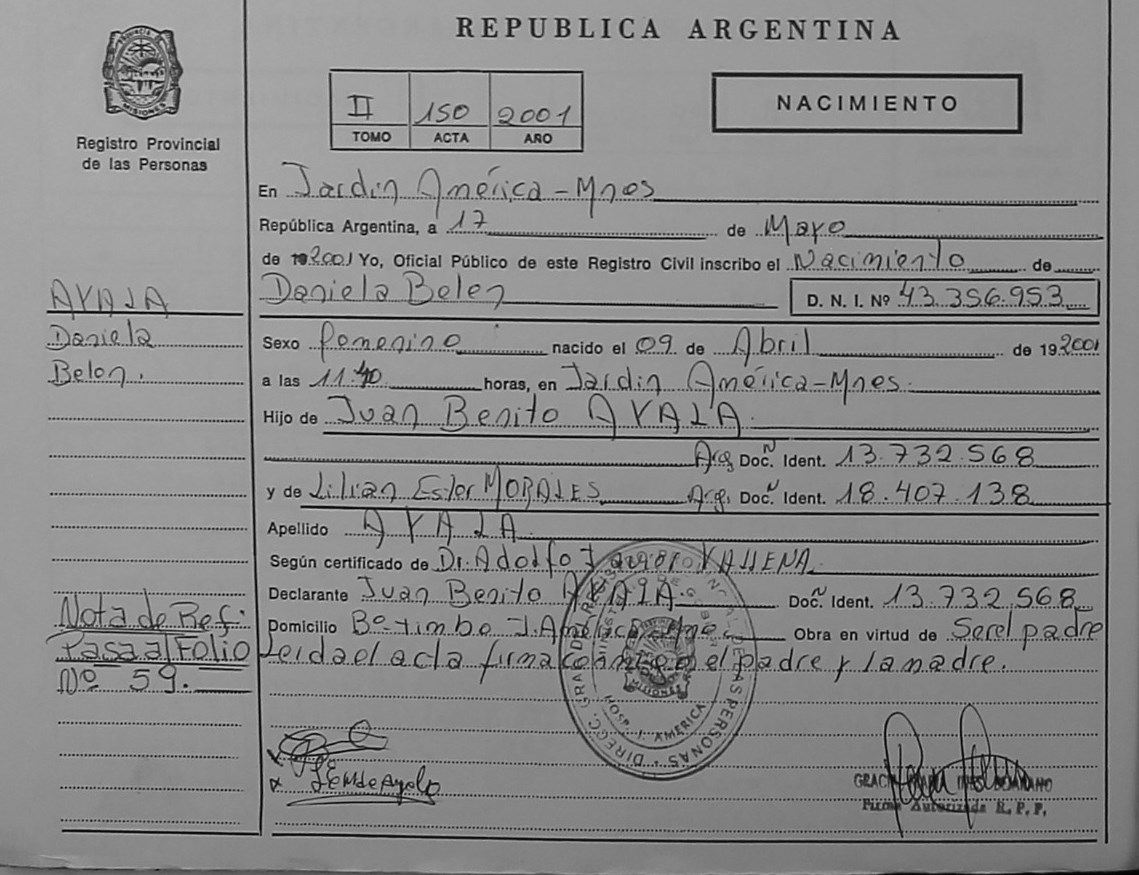 REPUBLICA ARGENTINA
PROVINCIA DE
MISIONES
Registro Provincial
de las Personas
II 150 2001
TOMO ACTA AÑO
NACIMIENTO
En Jardin América - Mnes
República Argentina, a 17 de Mayo
de 19 2001 Yo, Oficial Público de este Registro Civil inscribo el Nacimiento de
Daniela Belen D. N. I. Nº 43.356.953
AYALA
Daniela
Belen.
Sexo femenino nacido el 09 de Abril de 19 2001
a las 11.40 horas, en Jardin América - Mnes.
Hijo de Juan Benito AYALA
Arg. Doc. N Ident. 13.732.568
y de Lilian Ester MORALES Arg. Doc. N Ident. 18.407.138
Apellido AYALA.
Según certificado de Dr. Adolfo
Declarante Juan Benito AYALA. Doc. N Ident. 13.732.568
Domicilio Bº timbo J. América Obra en virtud de Ser el padre
Leida el acta firma conmigo el padre y la madre.
Nota de Ref.
Pasa al Folio
Nº 59.
HOSP. J. AMERICA
DIRECC. GRAL.
PERSONAS
MISIONES
Firma Autorizada R. P. P.